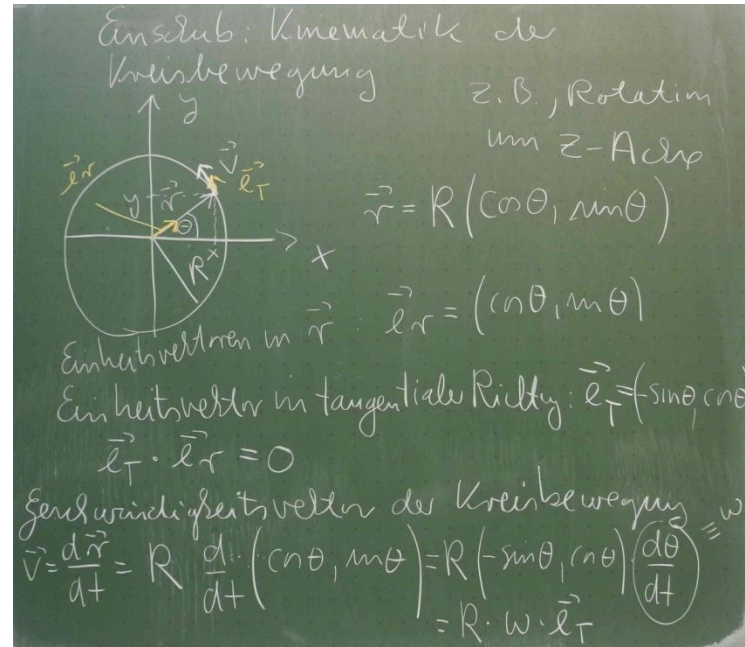 Einschub: Kinematik der
Kreisbewegung
z.B., Rotation
um z-Achse
y
x
\vec{e}_r
\vec{v}
\vec{e}_T
y
\vec{r}
θ
R
x
\vec{r} = R(cosθ, sinθ)
Einheitsvektoren in \vec{r} : \vec{e}_r = (cosθ, sinθ)
Einheitsvektor in tangentialer Richtg: \vec{e}_T = (-sinθ, cosθ)
\vec{e}_T · \vec{e}_r = 0
Geschwindigkeitsvektor der Kreisbewegung
\vec{v} = \frac{d\vec{r}}{dt} = R \frac{d}{dt} (cosθ, sinθ) = R(-sinθ, cosθ) · \frac{dθ}{dt} = w
= R · w · \vec{e}_T